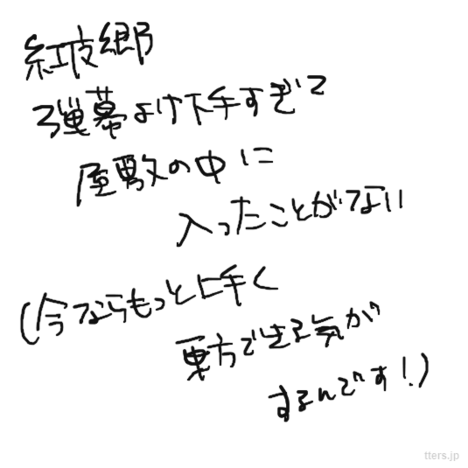 紅魔郷
弾幕よけ下手すぎて
屋敷の中に
入ったことがない
(今ならもっと上手く
東方できる気が
するんです!)
tters.jp